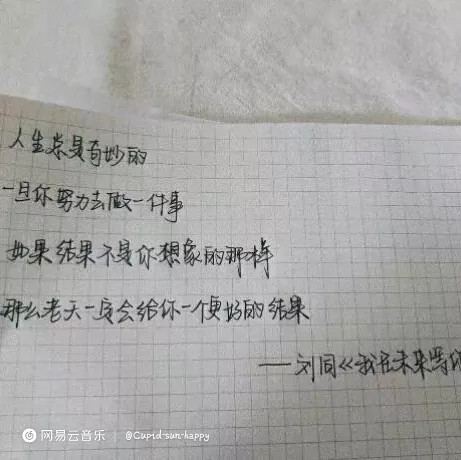 人生总是奇妙的
一旦你努力去做一件事
如果结果不是你想象的那样
那么老天一定会给你一个更好的结果
——刘同《我在未来等你
网易云音乐 | @Cupid-sun-happy